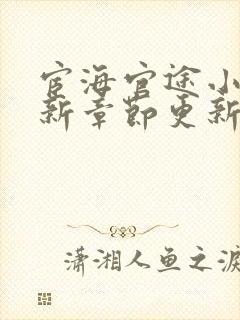 宦海官途小
新章节更新
潇湘人鱼之泪